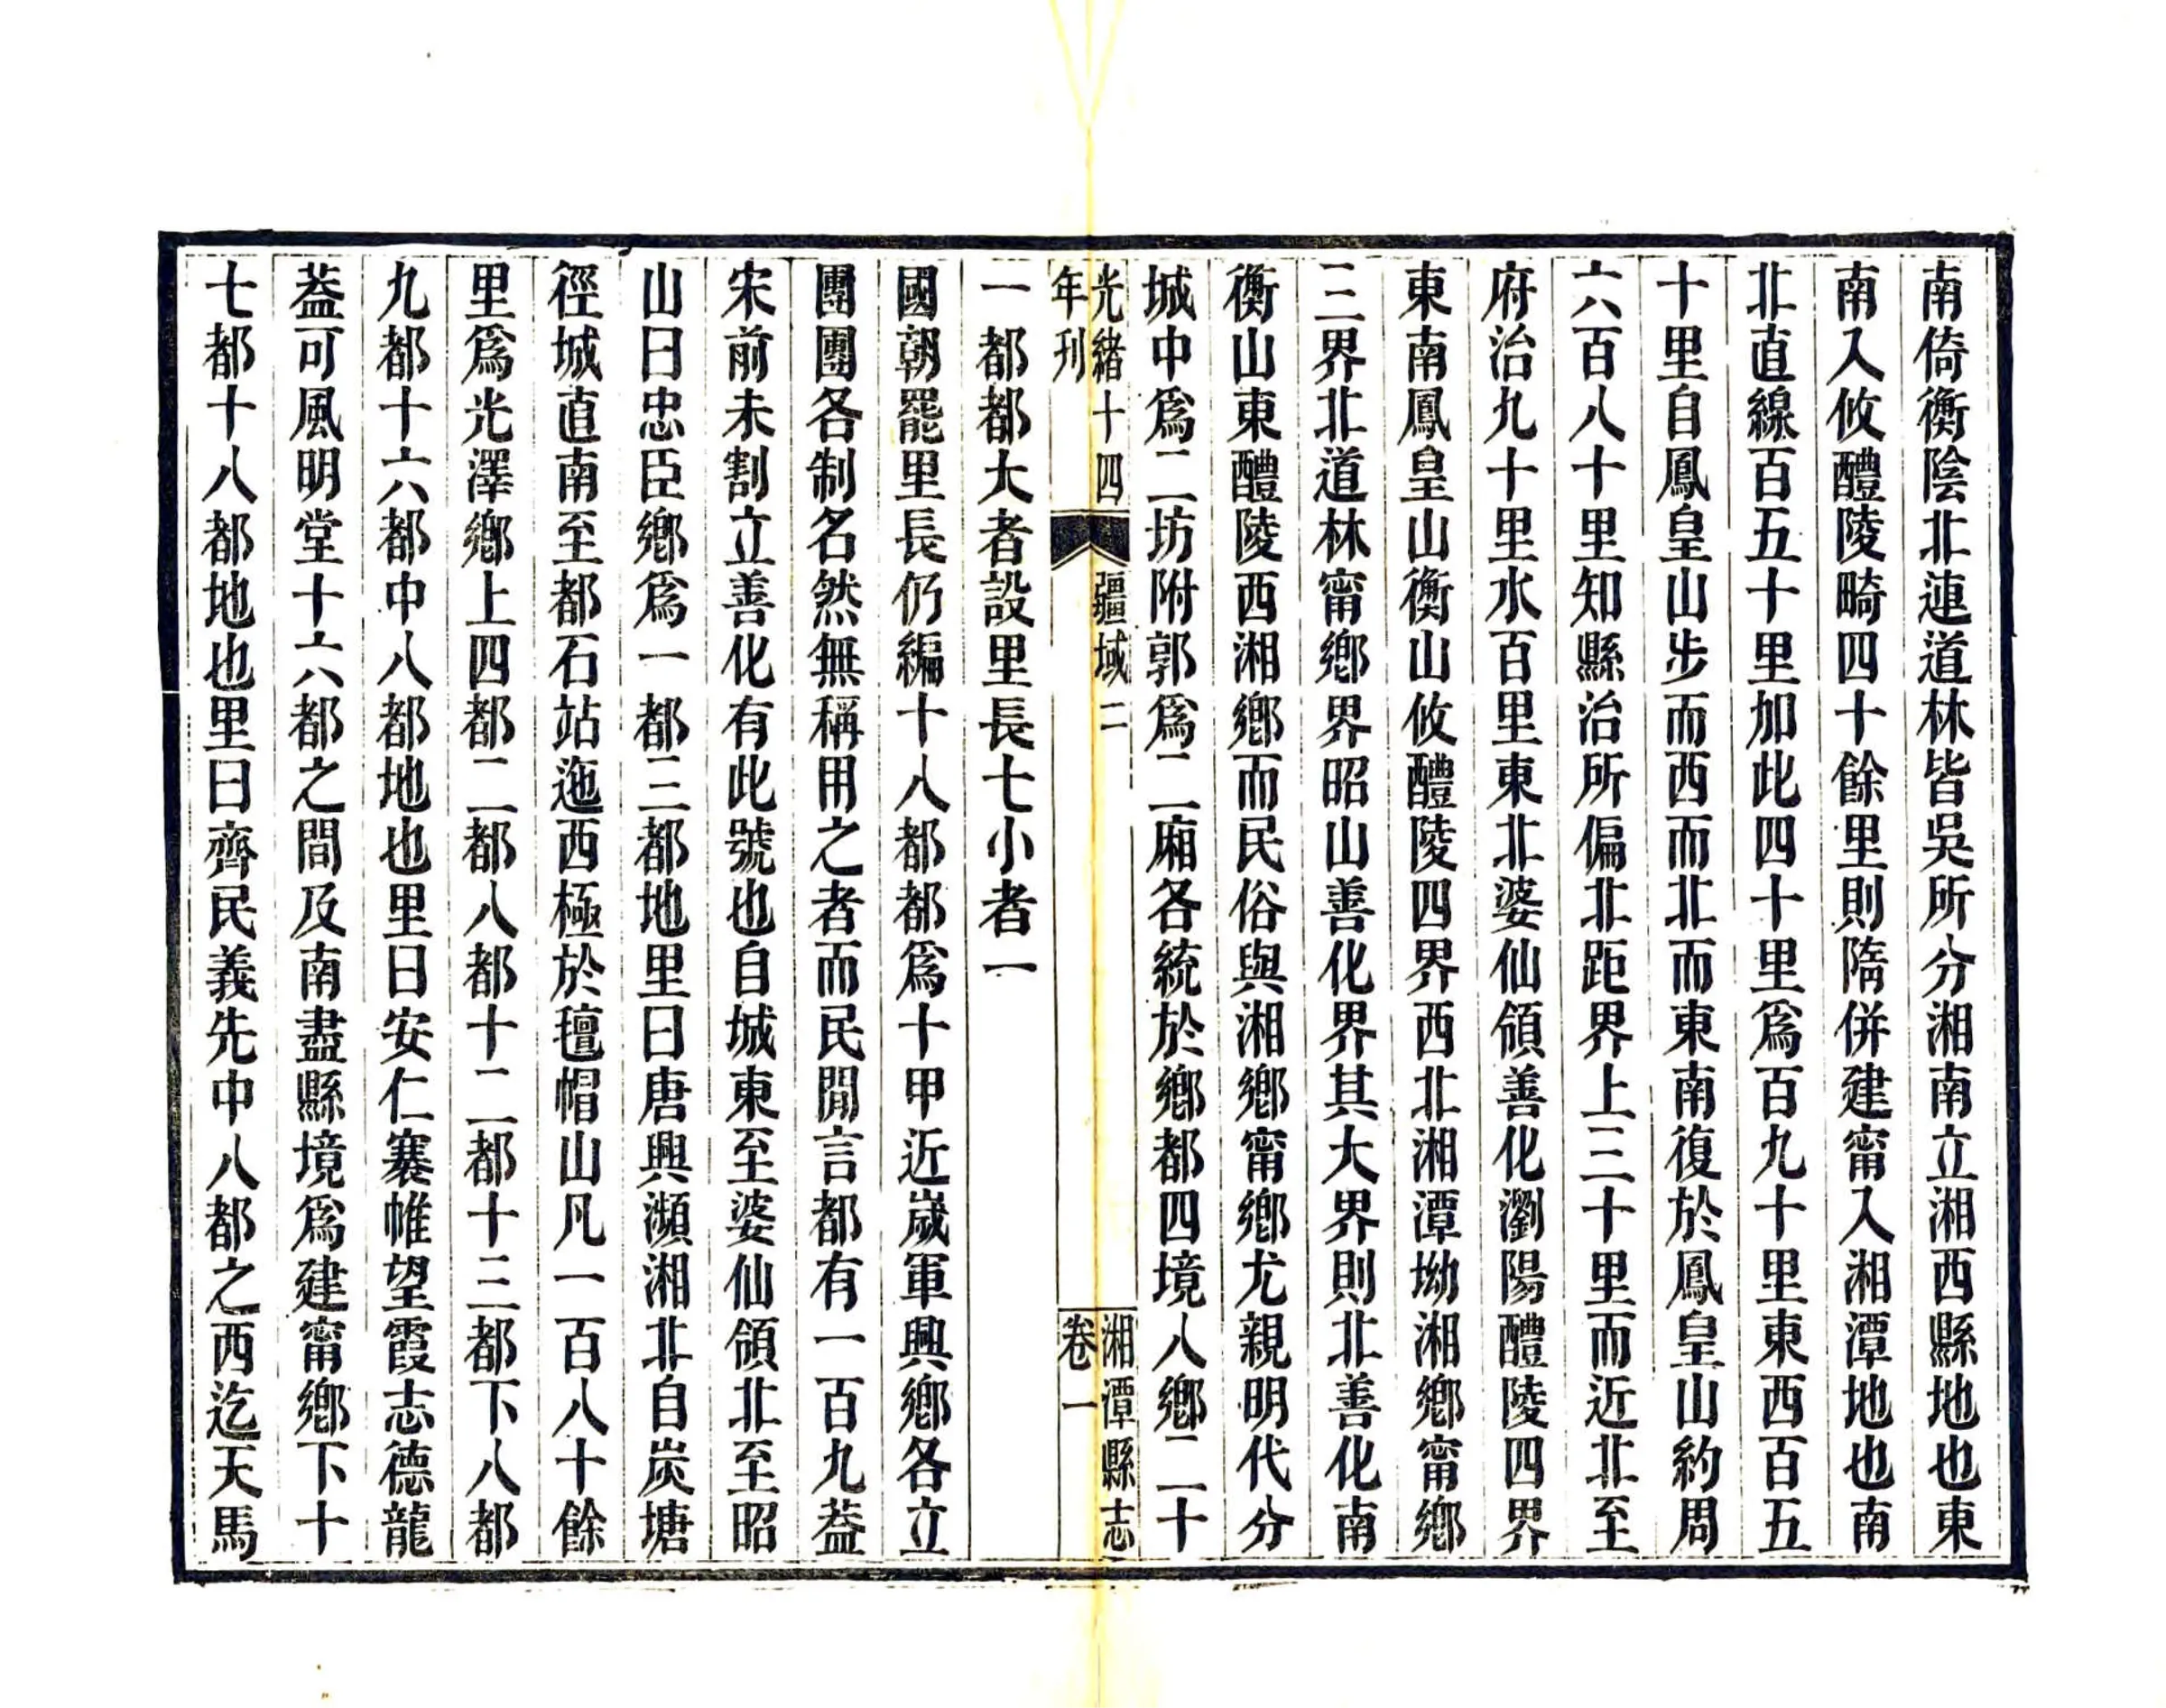 南倚衡陰北連道林皆吳所分湘南立湘西縣地也東
南入攸醴陵畸四十餘里則隋併建甯入湘潭地也南
北直線百五十里加此四十里爲百九十里東西百五
十里自鳳皇山步而西而北而東南復於鳳皇山約周
六百八十里知縣治所偏北距界上三十里而近北至
府治九十里水百里東北婆仙領善化瀏陽醴陵四界
東南鳳皇山衡山攸醴陵四界西北湘潭坳湘鄉甯鄉
三界北道林甯鄉界昭山善化界其大界則北善化南
衡山東醴陵西湘鄉而民俗與湘鄉甯鄉尤親明代分
城中爲二坊附郭爲二廂各統於鄉都四境八鄉二十
光緒十四
年刊
疆域二
湘潭縣志
卷一
一都都大者設里長七小者一
國朝罷里長仍編十八都都爲十甲近嵗軍興鄉各立
團團各制名然無稱用之者而民閒言都有一百九葢
宋前未割立善化有此號也自城東至婆仙領北至昭
山曰忠臣鄉爲一都三都地里曰唐興瀕湘北自炭塘
徑城直南至都石站迤西極於氊帽山凡一百八十餘
里爲光澤鄉上四都二都八都十二都十三都下八都
九都十六都中八都地也里曰安仁褰帷望霞志德龍
葢可風明堂十六都之間及南盡縣境爲建甯鄉下十
七都十八都地也里曰齊民義先中八都之西迄天馬